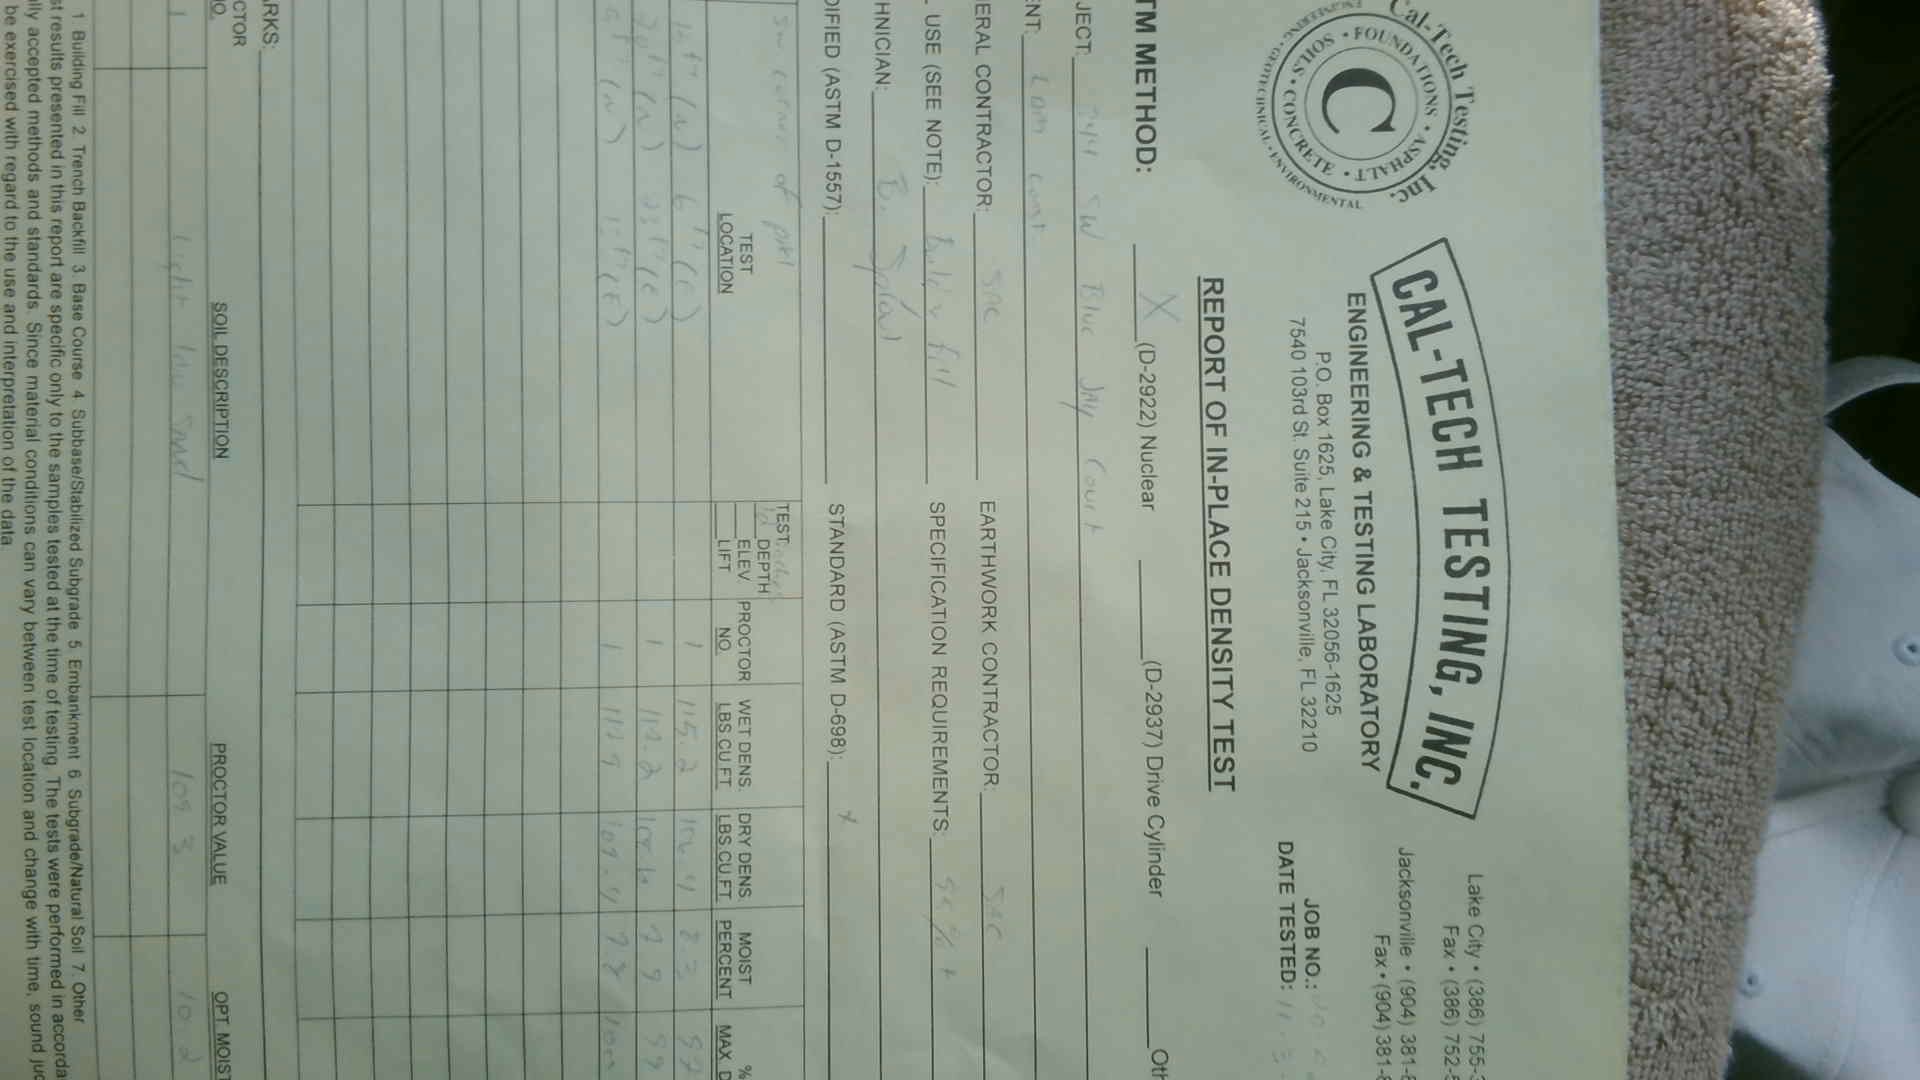 Cal-Tech Testing, Inc.
• FOUNDATIONS • ASPHALT • CONCRETE • SOILS
• GEOTECHNICAL • ENVIRONMENTAL
C
CAL-TECH TESTING, INC.
ENGINEERING & TESTING LABORATORY
P.O. Box 1625, Lake City, FL 32056-1625
7540 103rd St. Suite 215 • Jacksonville, FL 32210
Lake City • (386) 755-
Fax • (386) 752-
Jacksonville • (904) 381-
Fax • (904) 381-
JOB NO.:
DATE TESTED: 11.
REPORT OF IN-PLACE DENSITY TEST
TM METHOD: X (D-2922) Nuclear (D-2937) Drive Cylinder Oth
JECT: SW Blue Jay Court
ENT:
ERAL CONTRACTOR: SAC EARTHWORK CONTRACTOR: SAC
USE (SEE NOTE): Building fill SPECIFICATION REQUIREMENTS: 95% +
HNICIAN: B.
DIFIED (ASTM D-1557): STANDARD (ASTM D-698): X
TEST LOCATION TEST: DEPTH ELEV LIFT PROCTOR NO. WET DENS. LBS.CU.FT. DRY DENS. LBS.CU.FT. MOIST PERCENT % MAX. D
SW corner of pad 12"
12ft (N) 6ft (E) 1 115.2 106.4 8.3 97
(N) (E) 1 7.9 99
(N) (E) 1 109.4 7.8 100
ARKS:
CTOR NO. SOIL DESCRIPTION PROCTOR VALUE OPT. MOIST
1 Light sand 109.3 10.2
1 Building Fill 2. Trench Backfill 3. Base Course 4. Subbase/Stabilized Subgrade 5. Embankment 6. Subgrade/Natural Soil 7. Other
st results presented in this report are specific only to the samples tested at the time of testing. The tests were performed in accorda
lly accepted methods and standards. Since material conditions can vary between test location and change with time, sound juc
be exercised with regard to the use and interpretation of the data.